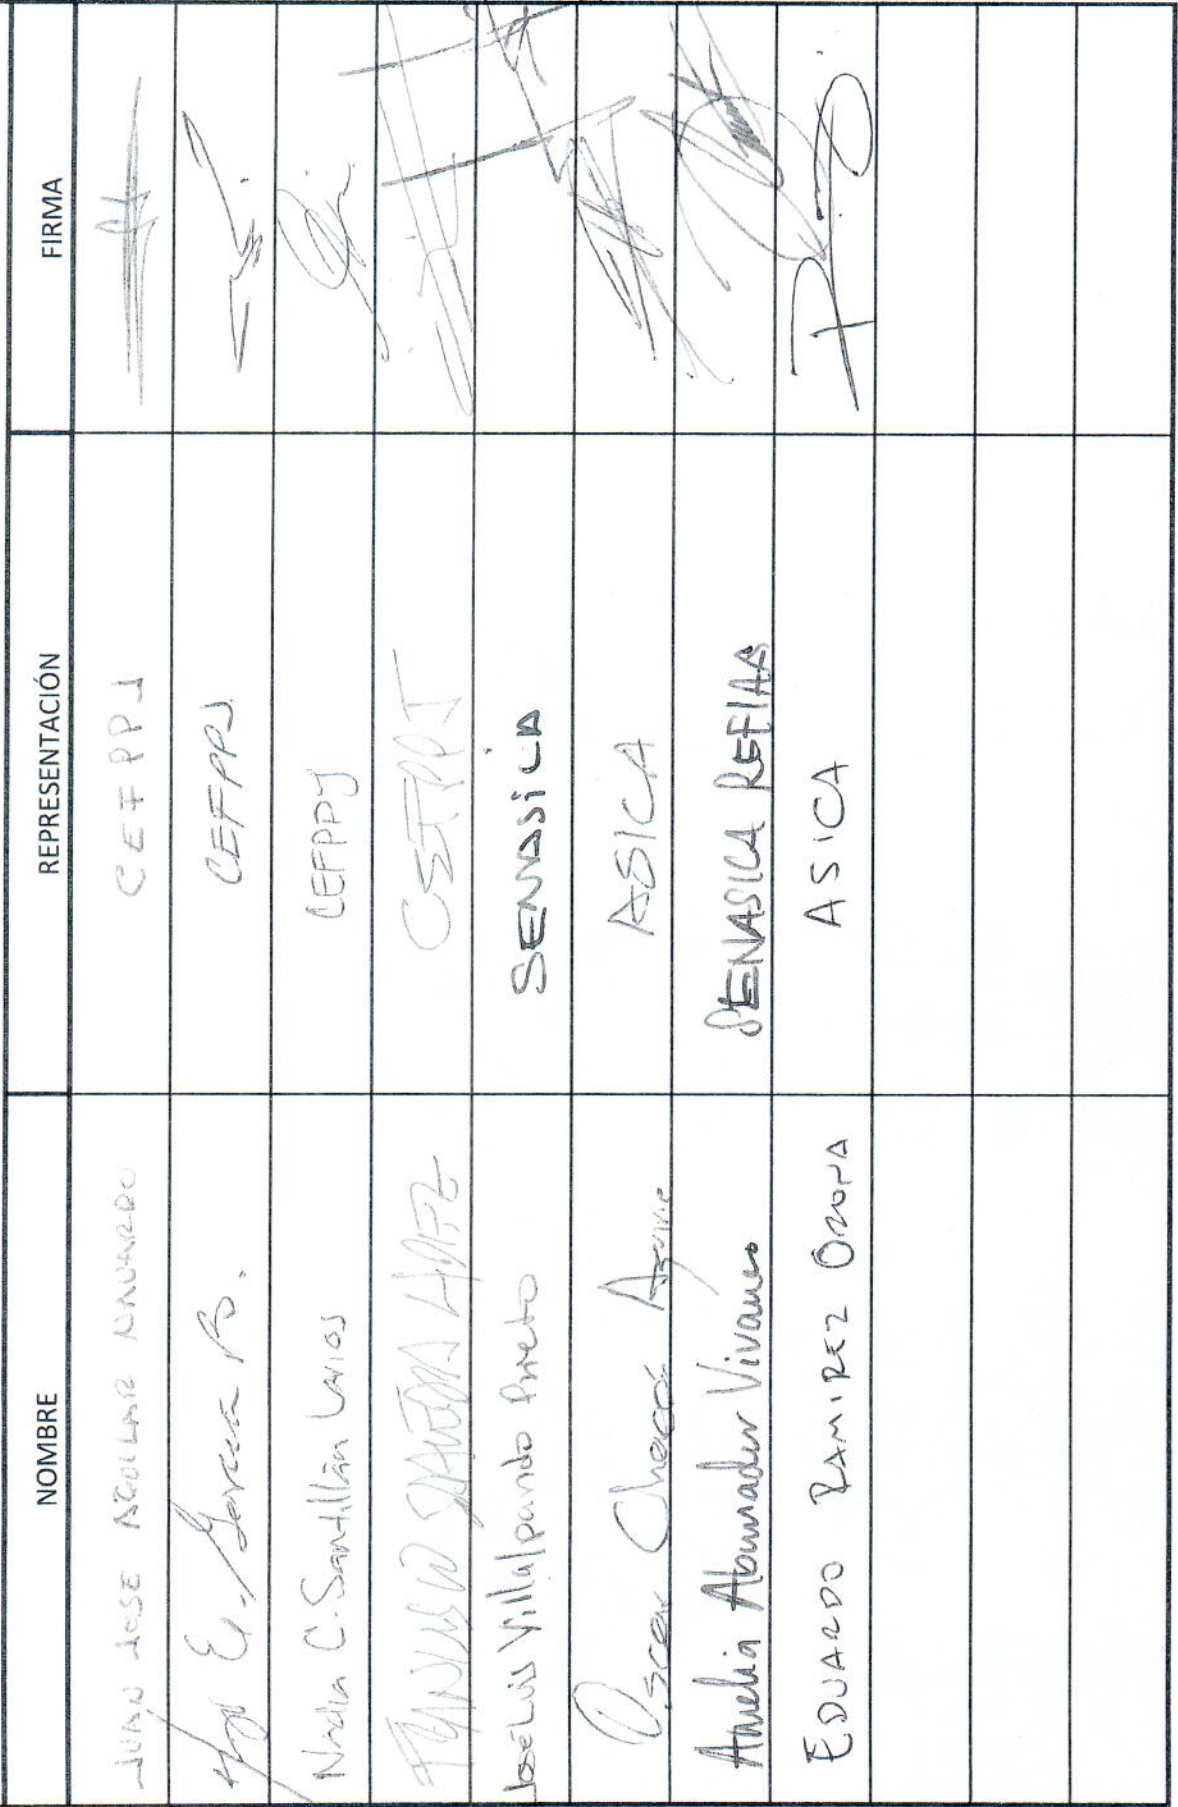 NOMBRE REPRESENTACIÓN FIRMA
JUAN JOSE AGUILAR NAVARRO CEFPPJ
E. Garcia CEFPPJ
Nadia C. Santillán Larios CEFPPJ
CEFPPJ
José Luis Villalpando Prieto SENASiCA
Oscar Chacón Aguirre ASICA
Amelia Abumader Vivanco SENASICA REFIAA
EDUARDO RAMIREZ OZONA ASICA